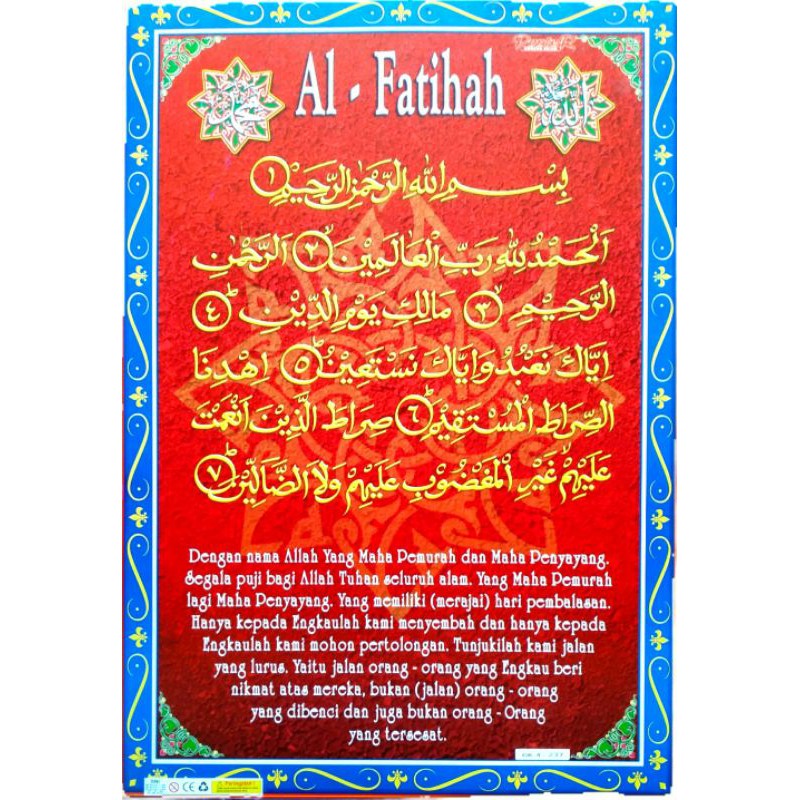 Al - Fatihah
محمد
الله
بِسْمِ اللهِ الرَّحْمٰنِ الرَّحِيْمِ ١
اَلْحَمْدُ لِلّٰهِ رَبِّ الْعَالَمِيْنَ ٢ اَلرَّحْمٰنِ
الرَّحِيْمِ ٣ مَالِكِ يَوْمِ الدِّيْنِ ٤
اِيَّاكَ نَعْبُدُ وَاِيَّاكَ نَسْتَعِيْنُ ٥ اِهْدِنَا
الصِّرَاطَ الْمُسْتَقِيْمَ ٦ صِرَاطَ الَّذِيْنَ اَنْعَمْتَ
عَلَيْهِمْ غَيْرِ الْمَغْضُوْبِ عَلَيْهِمْ وَلَا الضَّالِّيْنَ ٧
Dengan nama Allah Yang Maha Pemurah dan Maha Penyayang.
Segala puji bagi Allah Tuhan seluruh alam. Yang Maha Pemurah
lagi Maha Penyayang. Yang memiliki (merajai) hari pembalasan.
Hanya kepada Engkaulah kami menyembah dan hanya kepada
Engkaulah kami mohon pertolongan. Tunjukilah kami jalan
yang lurus. Yaitu jalan orang - orang yang Engkau beri
nikmat atas mereka, bukan (jalan) orang - orang
yang dibenci dan juga bukan orang - Orang
yang tersesat.
CE